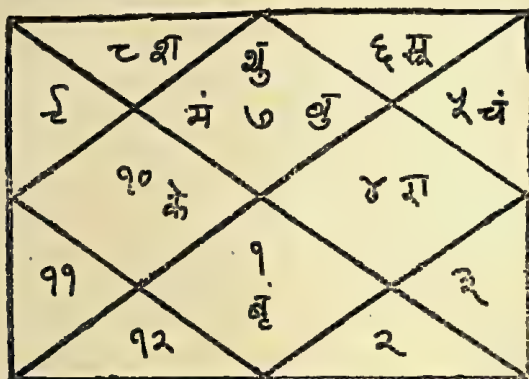 ८ श
शु
६ सू
९
मं ७ बु
५ चं
१० के
४ रा
११
१
बृ
३
१२
२